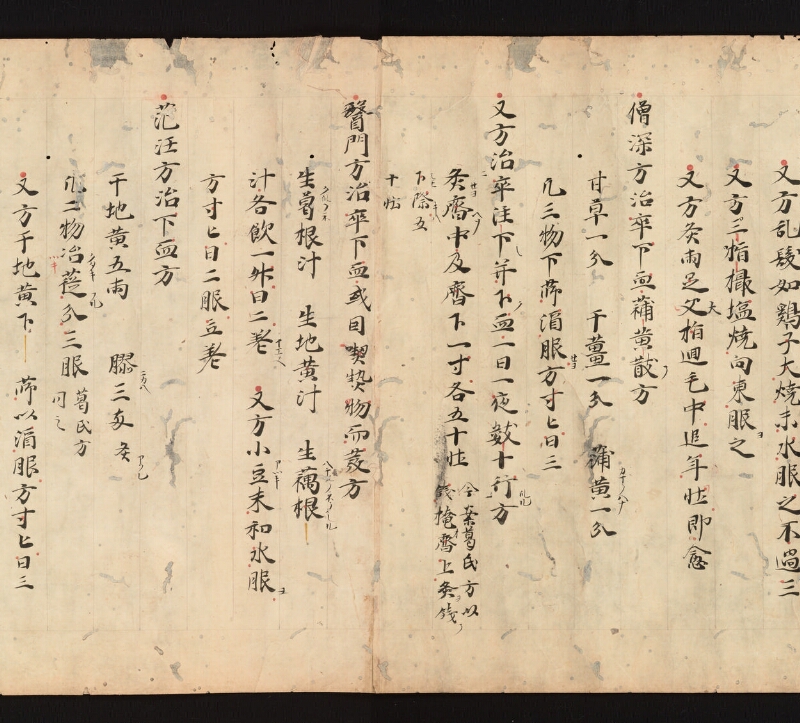 又方乱髮如鷄子大燒末水服之不過三
又方三指撮塩燒向東服之
又方灸兩足大父指迴毛中追年壮即愈
僧深方治卒下血蒲黄散方
甘草一分 干薑一分 蒲黄一分
凡三物下篩酒服方寸匕日三
又方治卒注下并下血一日一夜數十行方
灸齊中及齊下一寸各五十壮 今案葛氏方以錢掩齊上灸錢
下際五
十壮
醫門方治卒下血或因喫熱物而發方
生葛根汁 生地黄汁 生藕根
汁各飲一升日二巻 又方小豆末和水服
方寸匕日二服立巻
范汪方治下血方
干地黄五兩 膠三兩 灸
凡二物冶簁分三服 葛氏方同之
又方干地黄下 篩以酒服方寸匕日三